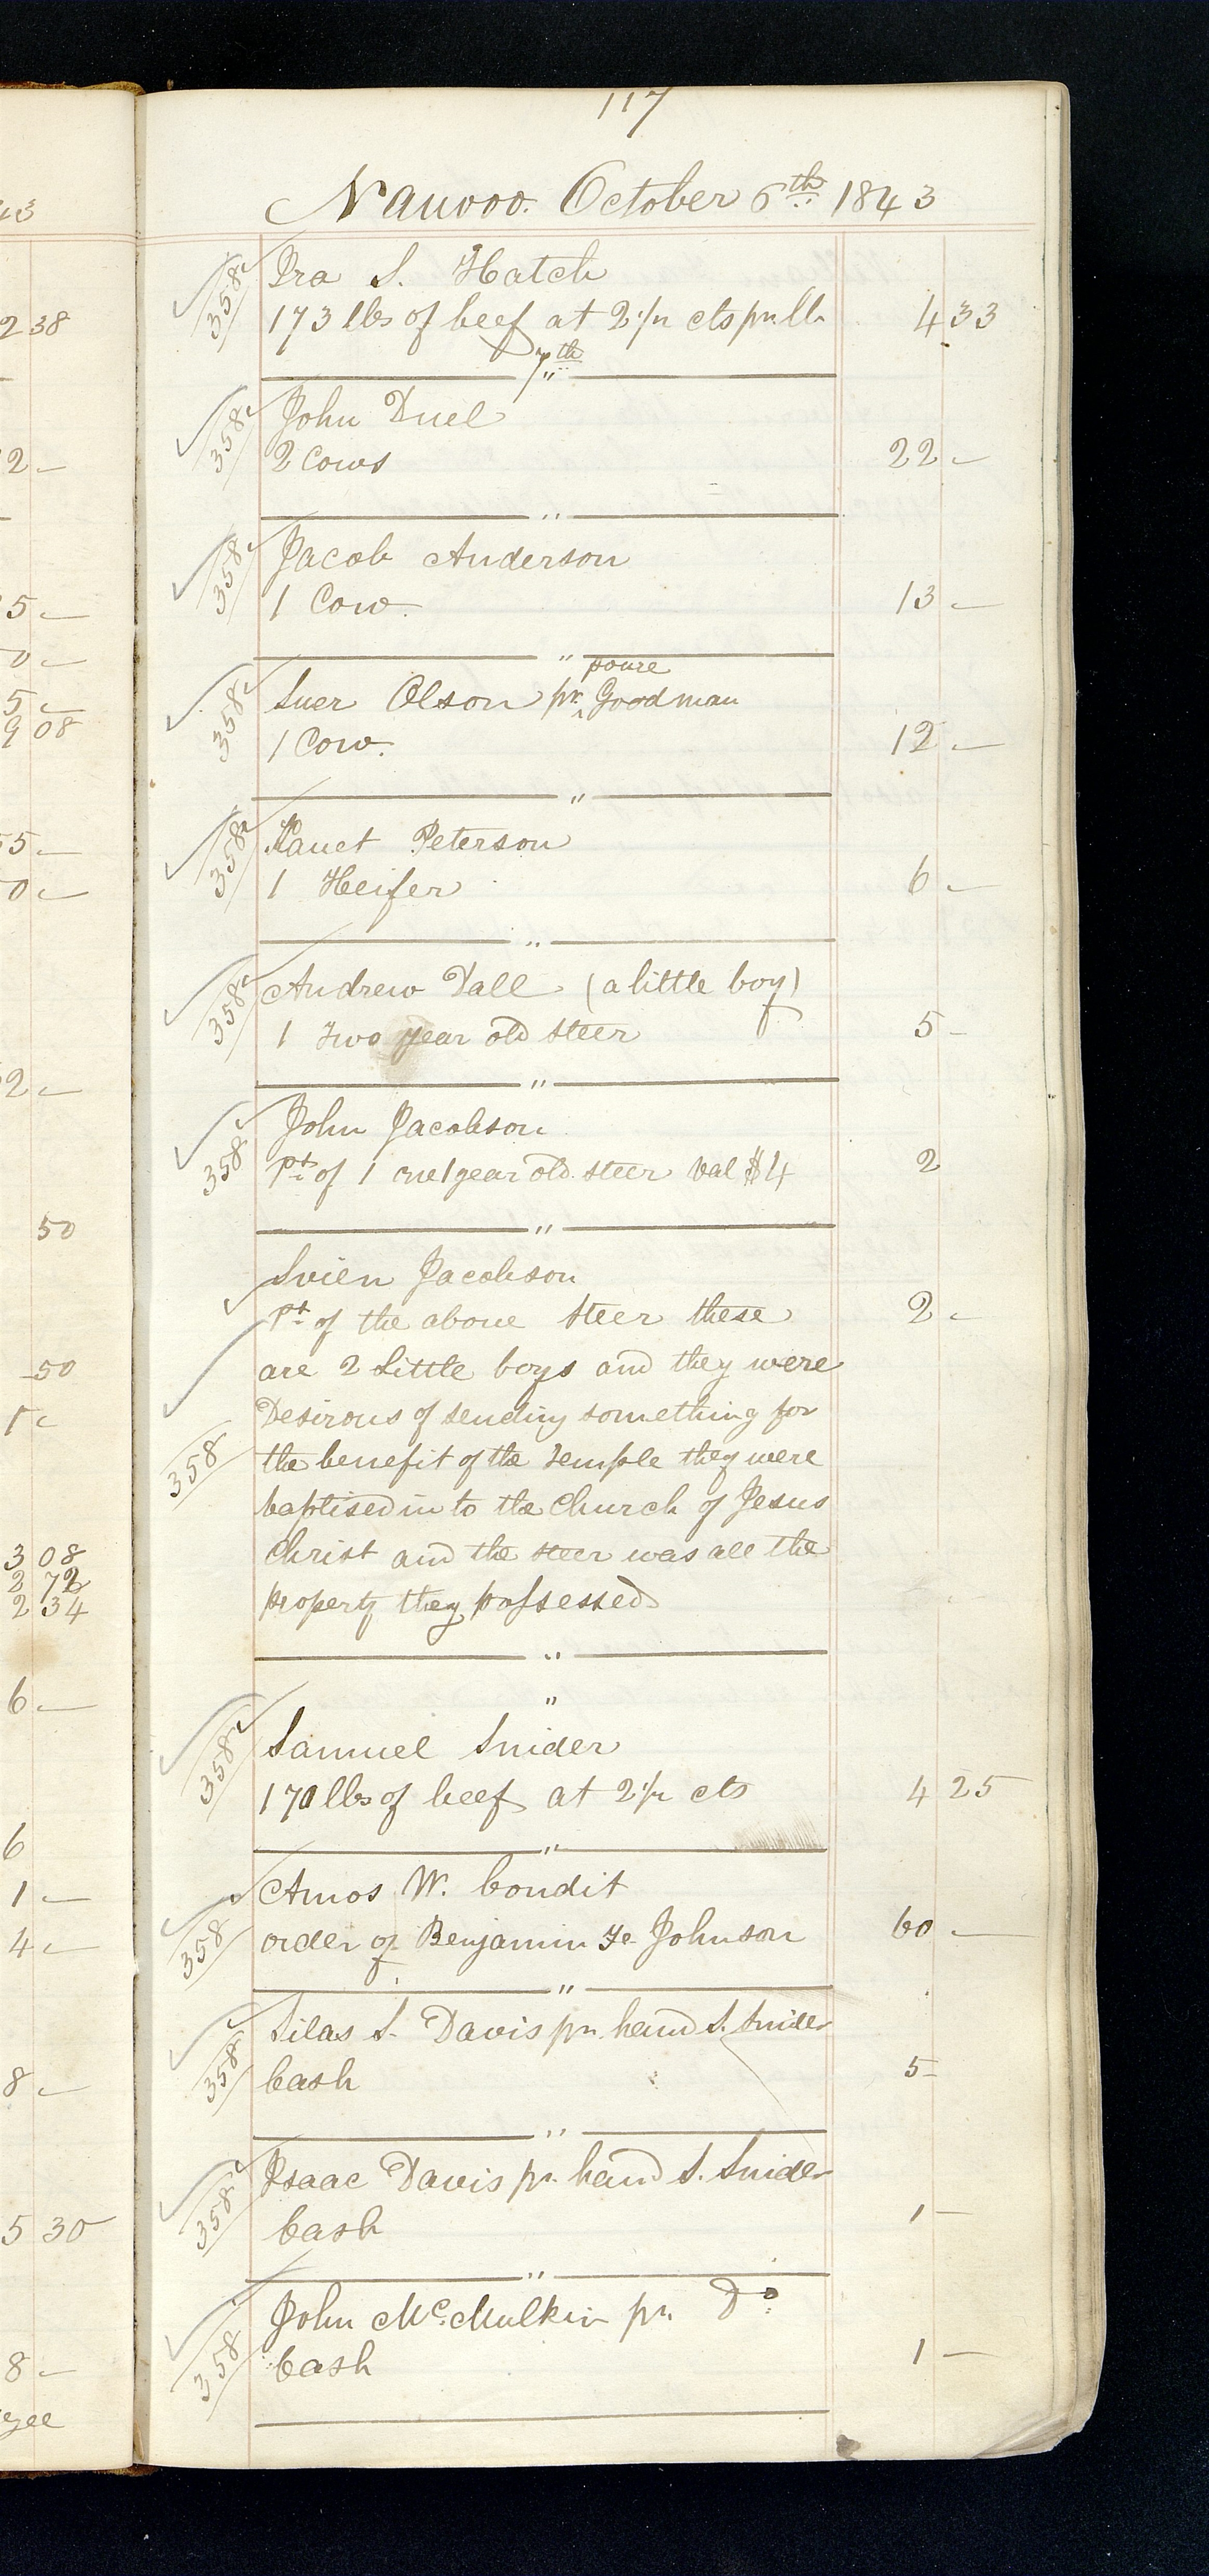 117
Nauvoo. October 6th 1843
358 Ira S. Hatch
173 lbs of beef at 2 1/2 cts pr lb 4 33
7th
358 John Duel
2 Cows 22 -
"
358 Jacob Anderson
1 Cow. 13 -
"
poure
358 Suer Olson pr ^ Goodman
1 Cow. 12 -
"
358 Peterson
1 Heifer 6 -
"
358 Andrew Dall (a little boy)
1 two year old steer 5 -
"
358 John Jacobson
Pt of 1 one year old steer Val $4 2
"
Svien Jacobson
Pt of the above steer these 2 -
are 2 little boys and they were
Desirous of sending something for
358 the benefit of the temple they were
baptised in to the Church of Jesus
Christ and the steer was all the
property they possessed
"
"
358 Samuel Snider
170 lbs of beef at 2 1/2 cts 4 25
"
Amos W. Condit
358 order of Benjamin F. Johnson 60 -
"
Silas S. Davis pr hand S. Snider
358 Cash 5 -
"
Isaac Davis pr hand S. Snider
358 Cash 1 -
"
John McMulkin pr Do
358 Cash 1 -
43
2 38
2 -
5 -
0 -
5 -
9 08
5 -
0 -
2 -
50
50
1 -
3 08
2 72
2 34
6 -
6
1 -
4 -
8 -
5 30
8 -